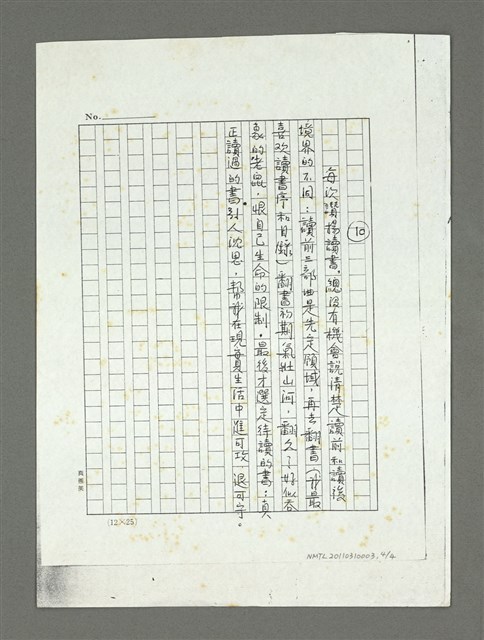 No.
10
每次讚揚讀書,總沒有機會說清楚讀前和讀後
境界的不同:讀前三部曲是先定領域,再去翻書(我最
喜歡讀書序和目錄)翻書初期氣壯山河,翻久了好似吞
象的老鼠,恨自己生命的限制,最後才選定待讀的書;真
正讀過的書引人沈思,幫我在現實生活中進可攻 退可守。
(12×25)
NMTL20110310003, 4/4